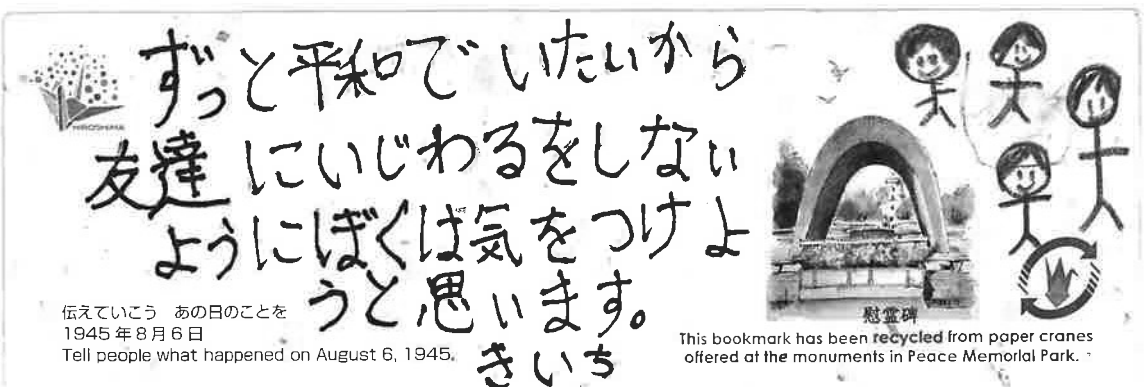 ずっと平和でいたいから
友達にいじわるをしない
ようにぼくは気をつけよ
うと思います。
きいち
HIROSHIMA
伝えていこう あの日のことを
1945年8月6日
Tell people what happened on August 6, 1945.
慰霊碑
This bookmark has been recycled from paper cranes
offered at the monuments in Peace Memorial Park.